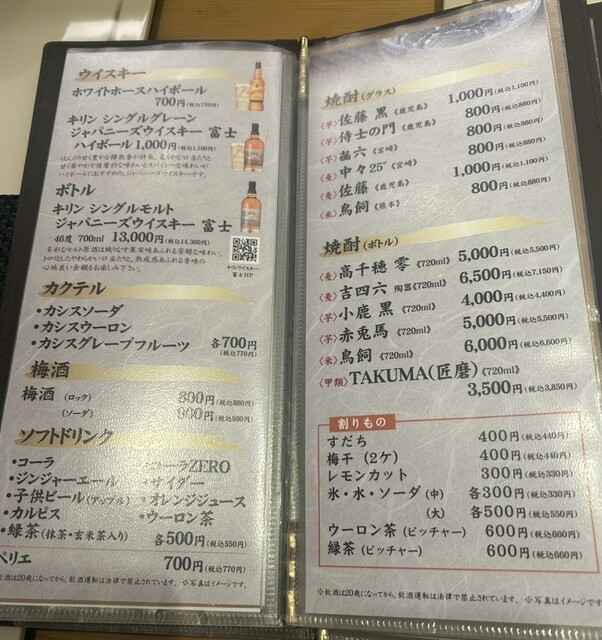 ウイスキー
ホワイトホースハイボール
700円(税込770円)
キリン シングルグレーン
ジャパニーズウイスキー 富士
ハイボール 1,000円(税込1,100円)
ボトル
キリン シングルモルト
ジャパニーズウイスキー 富士
46度 700ml 13,000円(税込14,300円)
多彩なモルト原酒が織りなす果実味あふれる芳醇な味わい。
トロリとしたやわらかい口当たりと、熟成感あふれる香味の
心地良い余韻をお楽しみ下さい。
キリンウイスキー
富士HP
カクテル
・カシスソーダ
・カシスウーロン
・カシスグレープフルーツ 各700円
(税込770円)
梅酒
梅酒 (ロック) 800円(税込880円)
(ソーダ) 900円(税込990円)
ソフトドリンク
・コーラ ・コーラZERO
・ジンジャーエール ・サイダー
・子供ビール(アップル) ・オレンジジュース
・カルピス ・ウーロン茶
・緑茶(抹茶・玄米茶入り) 各500円(税込550円)
ペリエ 700円(税込770円)
飲酒は20歳になってから。飲酒運転は法律で禁止されています。 ※写真はイメージです。
焼酎(グラス)
〈芋〉佐藤 黒《鹿児島》 1,000円(税込1,100円)
〈芋〉侍士の門《鹿児島》 800円(税込880円)
〈麦〉㐂六《宮崎》 800円(税込880円)
〈麦〉中々25°《宮崎》 800円(税込880円)
〈麦〉佐藤《鹿児島》 1,000円(税込1,100円)
〈米〉鳥飼《熊本》 800円(税込880円)
焼酎(ボトル)
〈麦〉高千穂 零《720ml》 5,000円(税込5,500円)
〈麦〉吉四六 陶器《720ml》 6,500円(税込7,150円)
〈芋〉小鹿 黒《720ml》 4,000円(税込4,400円)
〈芋〉赤兎馬《720ml》 5,000円(税込5,500円)
〈米〉鳥飼《720ml》 6,000円(税込6,600円)
〈甲類〉TAKUMA(匠磨)《720ml》
3,500円(税込3,850円)
割りもの
すだち 400円(税込440円)
梅干(2ケ) 400円(税込440円)
レモンカット 300円(税込330円)
氷・水・ソーダ(中) 各300円(税込330円)
(大) 各500円(税込550円)
ウーロン茶(ピッチャー) 600円(税込660円)
緑茶(ピッチャー) 600円(税込660円)
※飲酒は20歳になってから。飲酒運転は法律で禁止されています。 ※写真はイメージです。